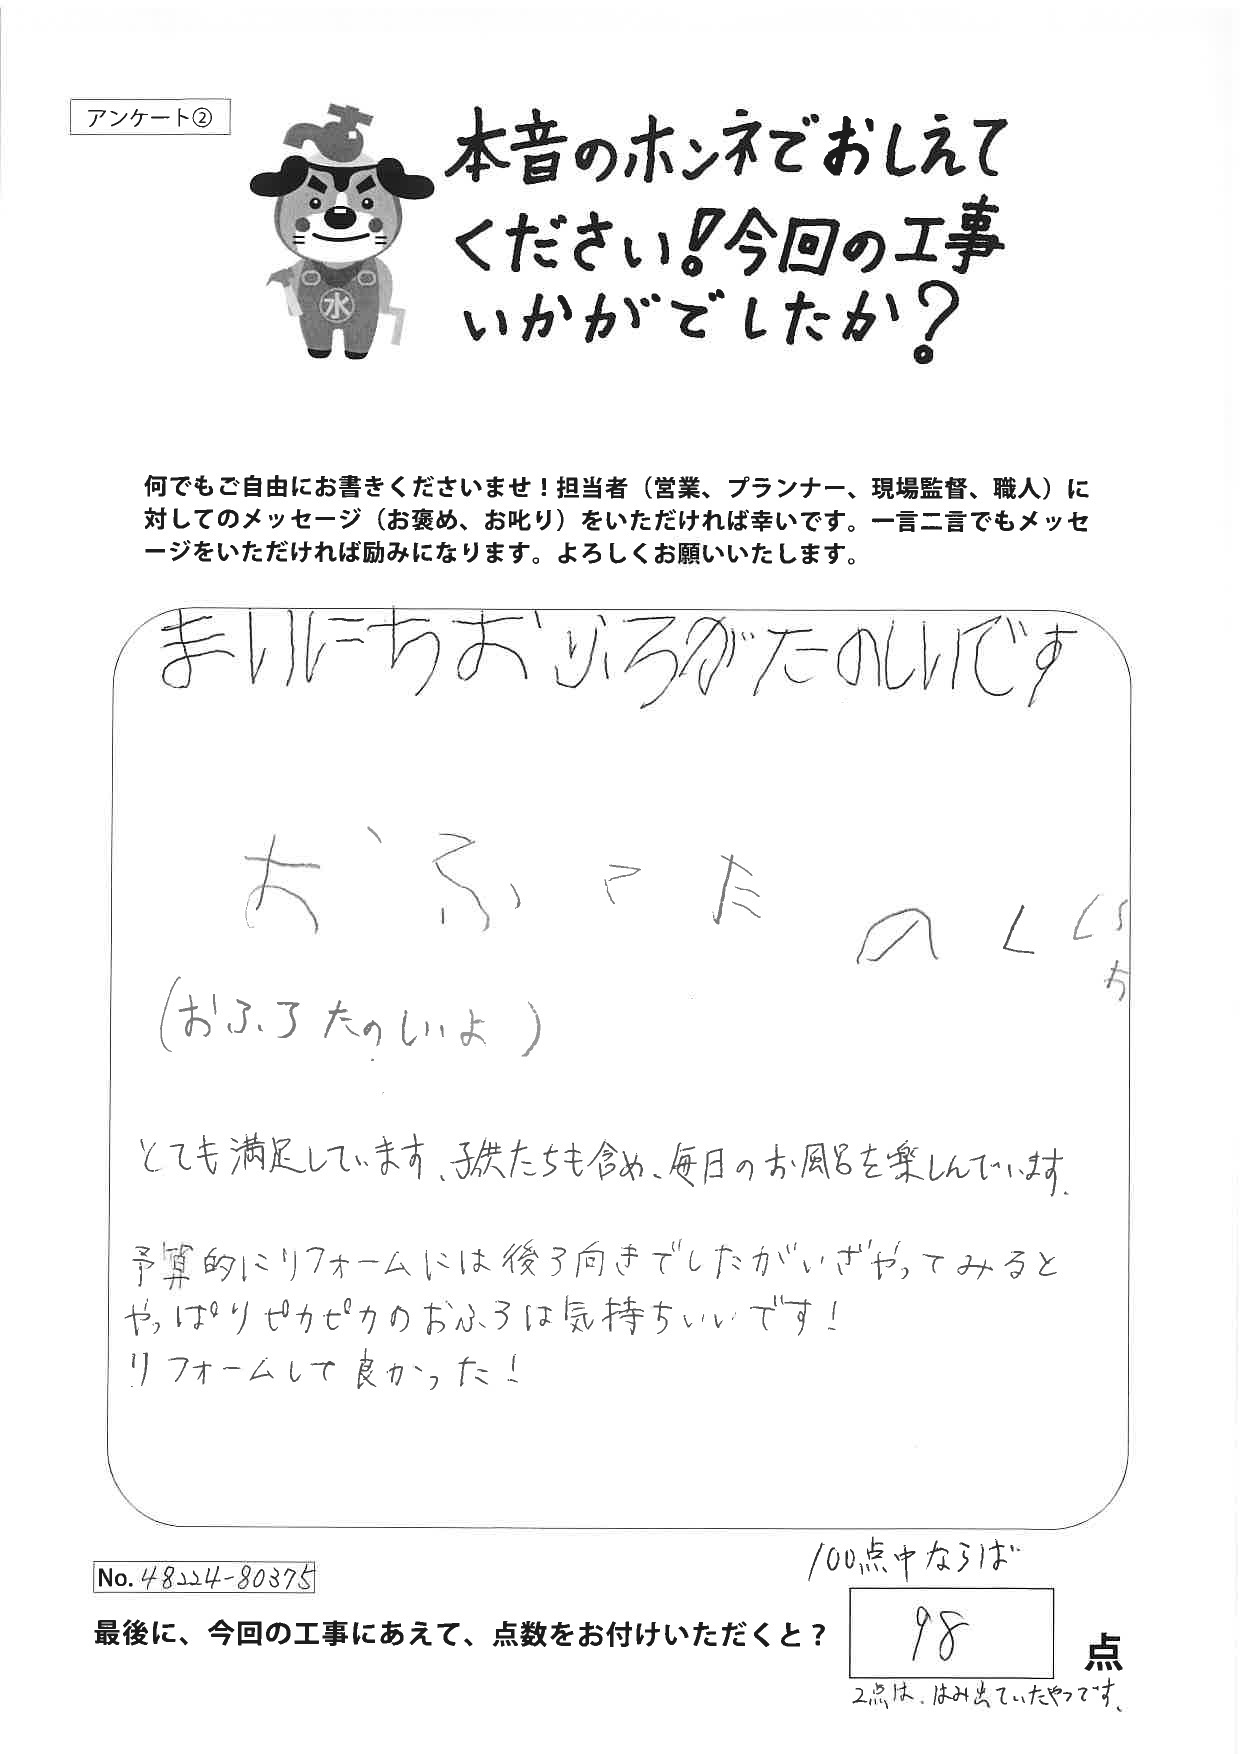 アンケート②
本音のホンネでおしえて
ください!今回の工事
いかがでしたか?
水
何でもご自由にお書きくださいませ！担当者（営業、プランナー、現場監督、職人）に
対してのメッセージ（お褒め、お叱り）をいただければ幸いです。一言二言でもメッセ
ージをいただければ励みになります。よろしくお願いいたします。
まいにちおふろがたのしいです
おふ
たの
(おふろたのしいよ)
とても満足しています、子供たちも含め、毎日のお風呂を楽しんでいます。
予算的にリフォームには後ろ向きでしたがいざやってみると
やっぱりピカピカのおふろは気持ちいいです!
リフォームして良かった!
100点中ならば
No. 48224-80375
最後に、今回の工事にあえて、点数をお付けいただくと？ 98 点
2点は、はみ出ていたやつです。